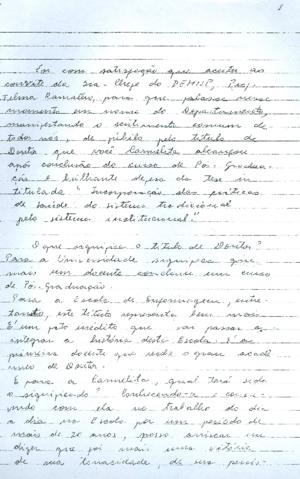 1
Foi com satisfação que aceitei ao
convite da Sra. Chefe do DEMISP, Prof.
Telma Ramalho, para que falasse nesse
momento em nome do Departamento,
manifestando o sentimento comum de
todos nós, de júbilo pelo título de
Doutor que você Carmelita alcançou
após conclusão do curso de Pós-Gradua
ção e brilhante defesa da tese in
titulada "Incorporação das práticas
de saúde do sistema tradicional
pelo sistema institucional."
O que significa o título de Doutor?
Para a Universidade significa que
mais um docente concluiu um curso
de Pós-Graduação.
Para a Escola de Enfermagem, entre
tanto, este título representa bem mais.
É um fato inédito que vai passar a
integrar a história desta Escola. É a
primeira docente que recebe o grau acadê
mico de Doutor.
E para a Carmelita, qual terá sido
o significado? Conhecendo-a e convi
vendo com ela no trabalho do dia
a dia na Escola por um período de
mais de 20 anos, posso arriscar em
dizer que foi mais uma vitória
de sua tenacidade, de sua persis-